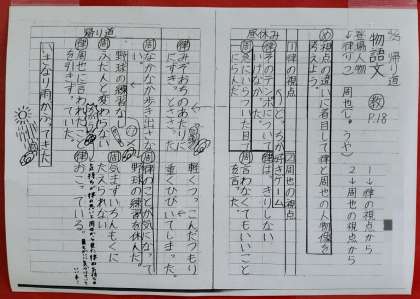 4/23 帰り道
物語文 教 P.18
登場人物
律(りつ) 周也(しゅうや)
1→律の視点から
2→周也の視点から
め 視点の違いに着目して律と周也の人物像を
考えよう。
1 律の視点
2 周也の視点
昼休み
どっちが好きゲーム
律 そのテンポについて
いけなかった。
律 はっきりしない
周 急にいらついた目で
にらんだ
周 言わなくてもいいこと
を言った。
律 みぞおちのあたりに
にすぎっとささった。
軽くつっこんだつもり
重くひびいてしまった。
帰り道
周 なかなか歩き出さない
野球の練習なし
周 律のことが気になって
野球の練習を休んだ。
周 ふだんと変わらない
周 気まずいちんもくに
たえられない
律 周也に言われたこと
を引きずっていた。
律 おこっている。
いきなり雨がふってきた